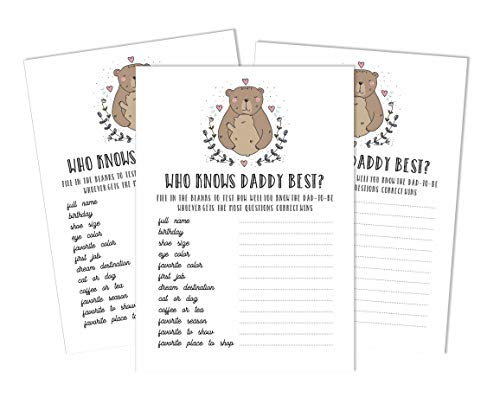 WHO KNOWS DADDY BEST?
FILL IN THE BLANKS TO TEST HOW
WHOEVER GETS THE
full name
birthday
shoe size
eye color
favorite color
first job
dream destination
cat or dog
coffee or tea
favorite season
favorite tv show
favorite place to
WHO KNOWS DADDY BEST?
FILL IN THE BLANKS TO TEST HOW WELL YOU KNOW THE DAD-TO-BE
WHOEVER GETS THE MOST QUESTIONS CORRECT WINS
full name
birthday
shoe size
eye color
favorite color
first job
dream destination
cat or dog
coffee or tea
favorite season
favorite tv show
favorite place to shop
DADDY BEST?
HOW WELL YOU KNOW THE DAD-TO-BE
QUESTIONS CORRECT WINS